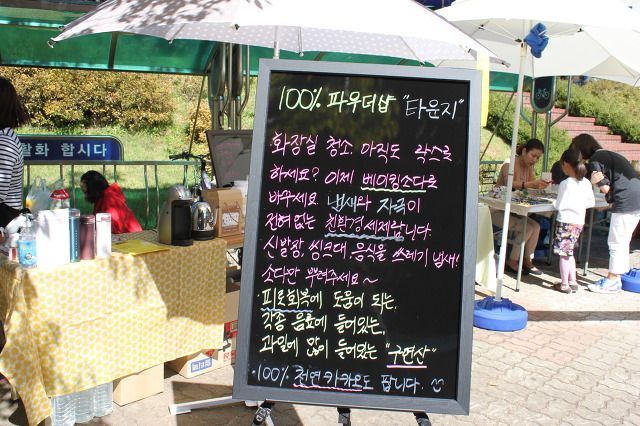 100% 파우더샵 "타운지"
화장실 청소 아직도 락스로
하세요? 이제 베이킹소다로
바꾸세요 냄새와 자극이
전혀 없는 친환경세제랍니다
신발장, 씽크대 음식물 쓰레기 냄새!
소다만 뿌려주세요~
피로회복에 도움이 되는,
각종 음료에 들어있는,
과일에 많이 들어있는 "구연산"
·100% 천연카카오도 팝니다.
활화 합시다